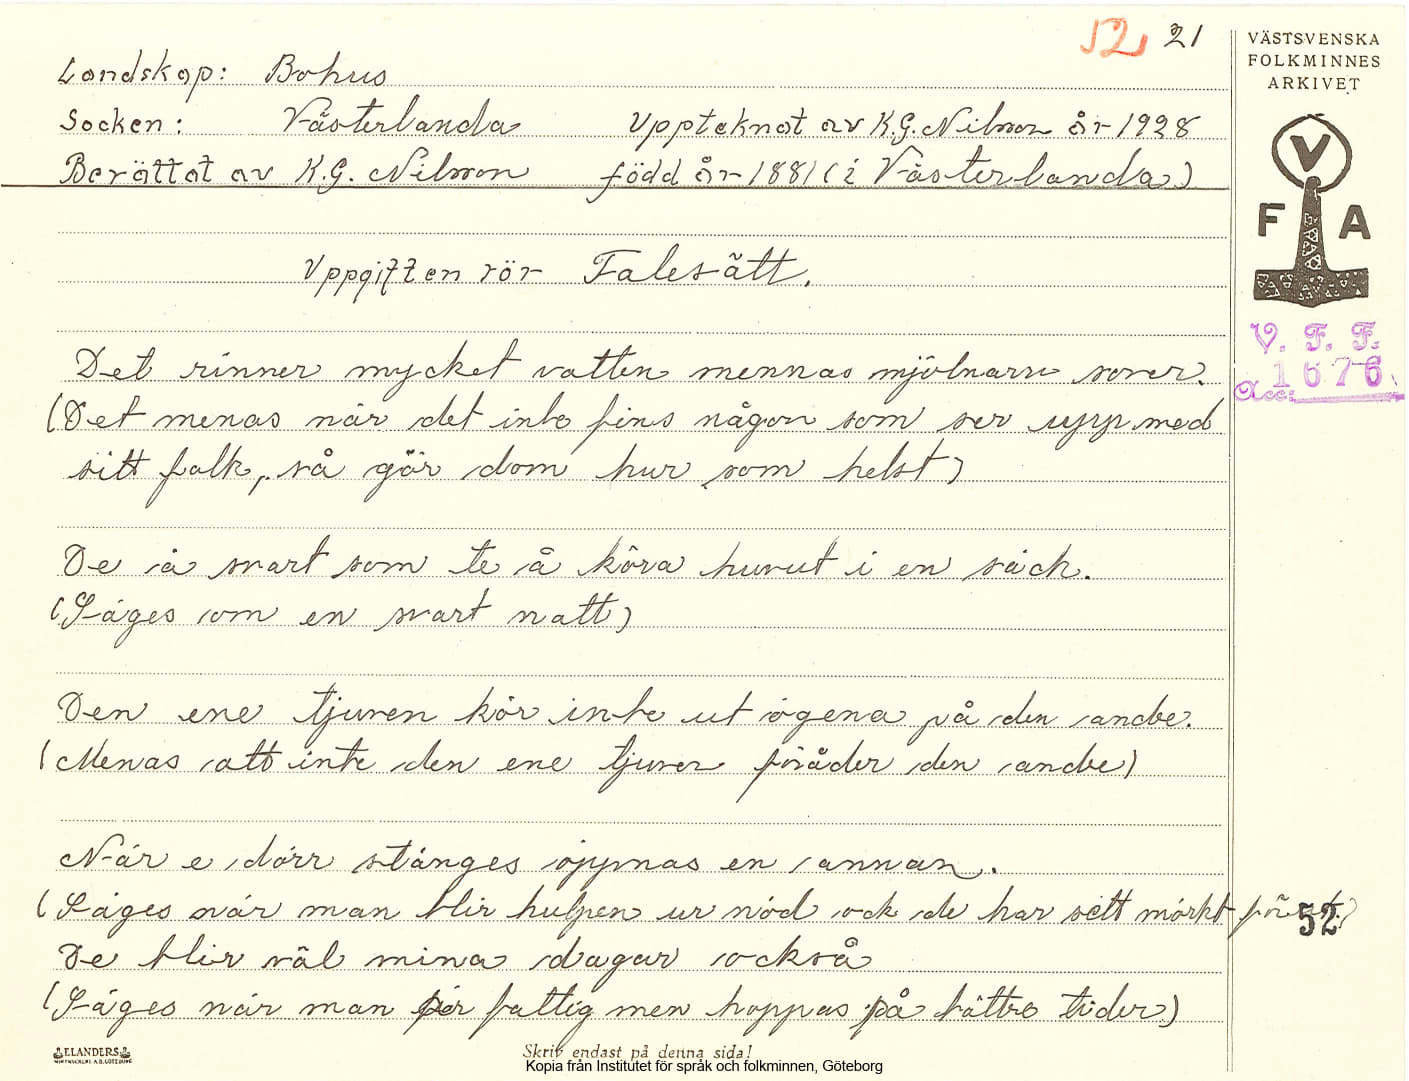 52 21
VÄSTSVENSKA
FOLKMINNES
ARKIVET
Landskap: Bohus
Socken: Västerlanda Upptecknat av K.G. Nilsson år 1928
Berättat av K.G. Nilsson född år 1881 (i Västerlanda)
V
F A
Uppgiften rör Talesätt.
V. F. F.
Acc: 1676
Det rinner mycket vatten mennas mjölnarn sover.
(Det menas när det inte fins någon som ser upp med
sitt folk, så gör dom hur som helst)
De ä svart som te å köra huvut i en säck.
(Säges om en svart natt)
Den ene tjuven kör inte ut ögena på den andre.
(Menas att inte den ene tjuven föråder den andre)
När e dörr stänges öppnas en annan.
(Säges när man blir hulpen ur nöd ock de har sett mörkt förut.)
52
De blir väl mina dagar också
(Säges när man är fattig men hoppas på bättre tider)
ELANDERS
Skriv endast på denna sida!
Kopia från Institutet för språk och folkminnen, Göteborg